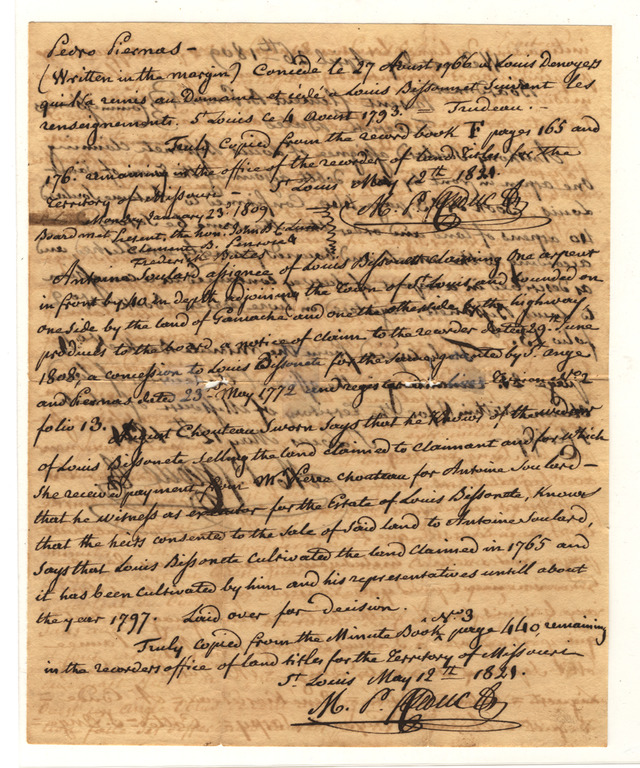 Pedro Piernas —
(Written in the margin) Concede le 27 Aoust 1766 a Louis Denoyers
qui l'a remis au Domaine et cédé a Louis Bissonnet suivant les
renseignements. St Louis ce 4 aoust 1793. = Trudeau. —
Truly Copied from the record book F pages 165 and
176. remaining in the office of the recorder of land Titles for the
Territory of Missouri —
St Louis May 12th 1821.
M. P. Leduc
Monday January 23d 1809
Board met Present, the hon. John B. C. Lucas
Clement B. Penrose &
Frederick Bates
Antoine Soulard assignee of Louis Bissonete claiming One arpent
in front by 40 in depth adjoining the Town of St Louis and bounded on
one side by the land of Gamache and one the other side by the highway
produces to the board a notice of claim to the recorder dated 29th June
1808, a concession to Louis Bissonete for the same granted by St ange
and Piernas dated 23d May 1772 and registered No 2
folio 13.
August Chouteau Sworn Says that he knows of the widow
of Louis Bissonete selling the land claimed to claimant and for which
She received payment from Mr Pierre chouteau for Antoine Soulard —
that he witness as executor for the Estate of Louis Bissonete, knows
that the heirs consented to the Sale of Said land to Antoine Soulard,
Says that Louis Bissonete Cultivated the land claimed in 1765 and
it has been cultivated by him and his representatives untill about
the year 1797. Laid over for decision.
Truly copied from the Minute Book No 3 page 440, remaining
in the recorders office of land titles for the Territory of Missouri
St Louis May 12th 1821.
M. P. Leduc